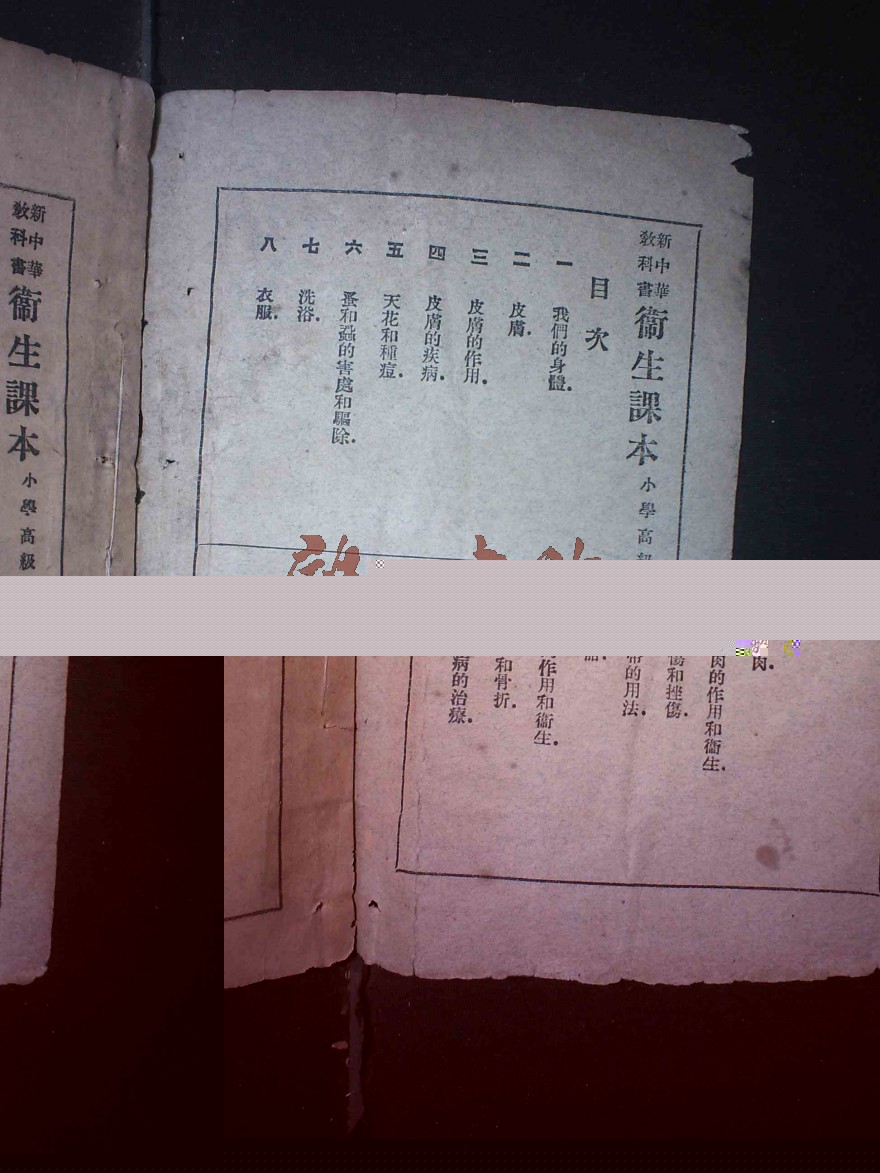 新中華
教科書
衞生課本
小學高級
目次
一 我們的身體.
二 皮膚.
三 皮膚的作用.
四 皮膚的疾病.
五 天花和種痘.
六 蚤和蝨的害處和驅除.
七 洗浴.
八 衣服.
肉.
肉的作用和衞生.
傷和挫傷.
的用法.
作用和衞生.
和骨折.
病的治療.
新中華
教科書
衞生課本
小學高級